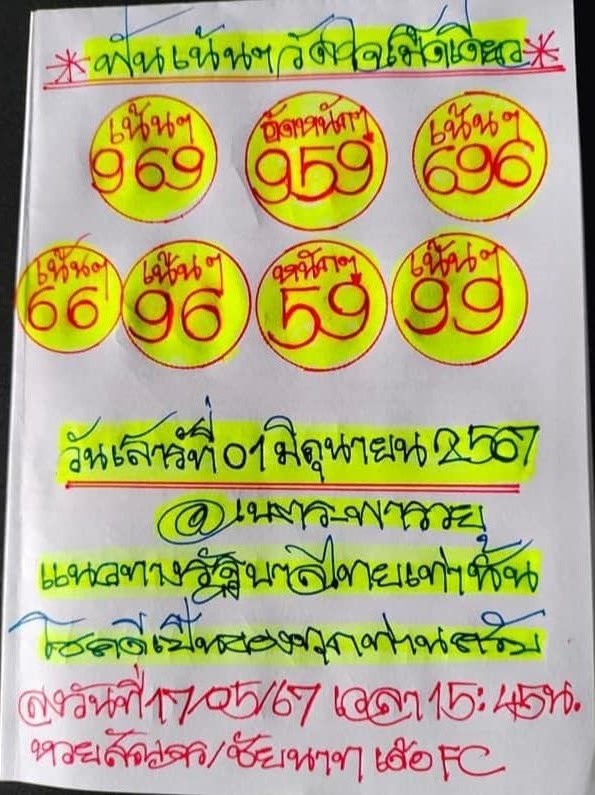 *ฟันเน้นๆวัดใจเม็ดเดียว*
เน้นๆ อัดหนักๆ เน้นๆ
969 959 696
เน้นๆ เน้นๆ หนักๆ เน้นๆ
66 96 59 99
วันเสาร์ที่ 01 มิถุนายน 2567
@เนตรพารวย
แนวทางรัฐบาลไทยเท่านั้น
โชคดีเป็นของทุกท่านครับ
ลงวันที่ 17/05/67 เวลา 15:45น.
หวย /ชัยนาท FC